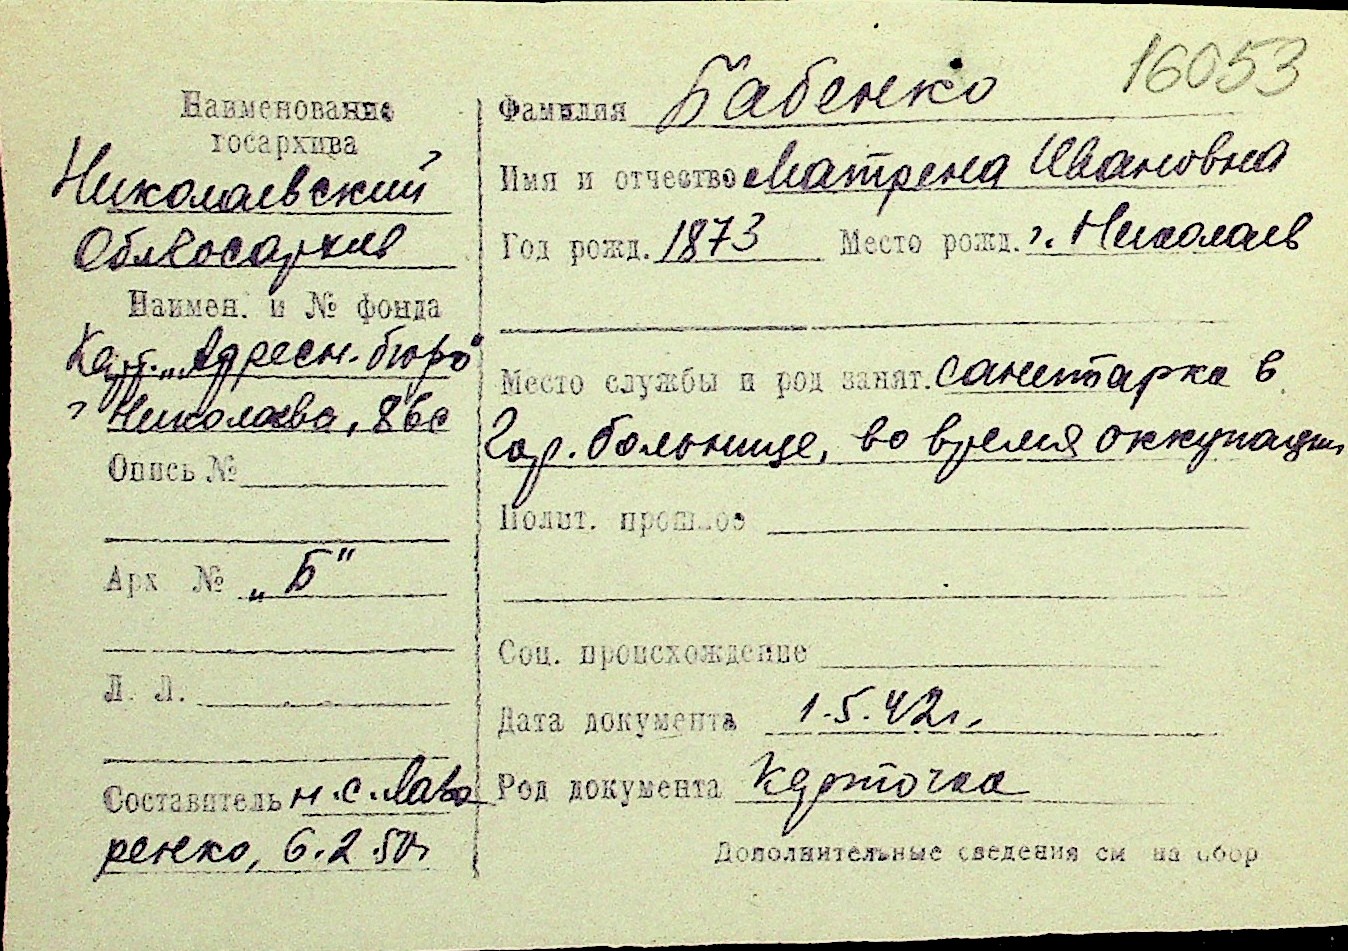 16053
Наименование
госархива
Николаевский
Облгосархив
Наимен. и № фонда
Карт. „Адресн. бюро“
г. Николаева,
Опись №
Арх № „Б“
Л. Л.
Составитель н.с. Лаво
ренко, 6.2.50г
Фамилия Бабенко
Имя и отчество Матрена Ивановна
Год рожд. 1873 Место рожд. г. Николаев
Место службы и род занят. санитарка в
Гор. больнице, во время оккупации
Полит. прошлое
Соц. происхождение
Дата документа 1.5.42г.
Род документа Карточка
Дополнительные сведения см на обор